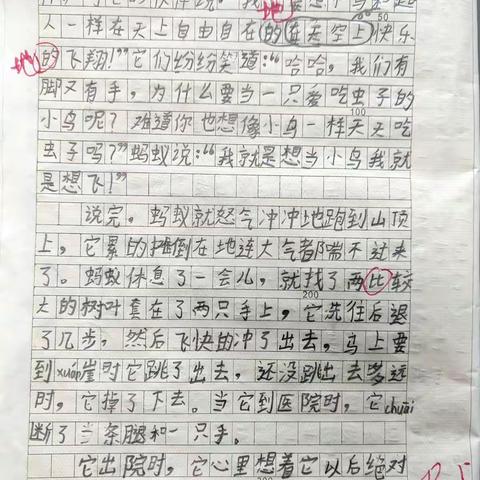 人一样在天上自由自在的在天空上快乐
的飞翔!”它们纷纷笑道:“哈哈,我们有
脚又有手,为什么要当一只爱吃虫子的
小鸟呢?难道你也想像小鸟一样天天吃
虫子吗?”蚂蚁说:“我就是想当小鸟我就
是想飞!”
说完。蚂蚁就怒气冲冲地跑到山顶
上,它累的摊倒在地连大气都喘不过来
了。蚂蚁休息了一会儿,就找了两比较
大的树叶套在了两只手上,它先往后退
了几步,然后飞快的冲了出去,马上要
到xuán崖时它跳了出去,还没跳出去多远
时,它掉了下去。当它到医院时,它chuāi
断了当条腿和一只手。
它出院时,它心里想着它以后绝对
地
地
50
100
200